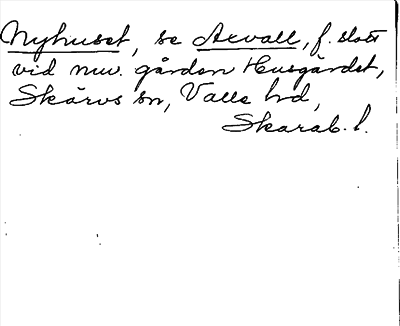 Nyhuset, se Axvall, f. slott
vid nuv. gården Husgärdet,
Skärvs sn, Valle hd,
Skarab. l.